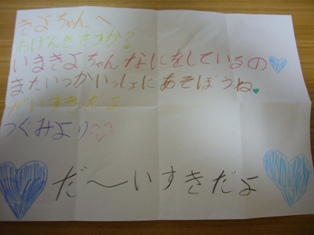 きよちゃんへ
おげんきですか?
いまきよちゃんなにをしているの
またいっかいいっしょにあそぼうね
だいすきだよ
つくみより
だ〜いすきだよ